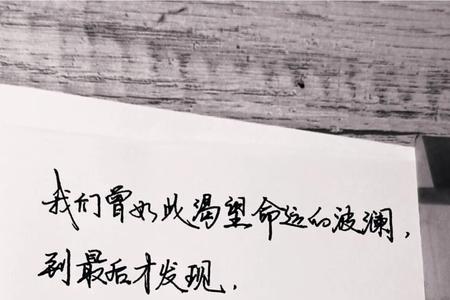 我们曾如此渴望命运的波澜，
到最后才发现，